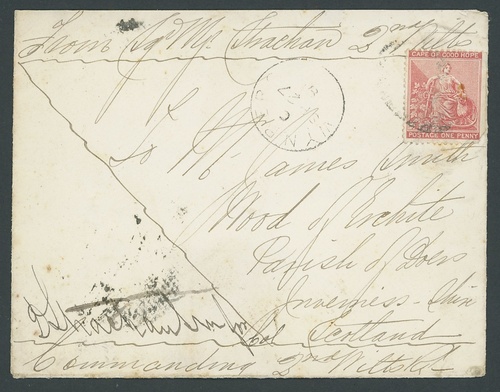 From Sgt Mjr Strachan 2nd Wilts
CAPE OF GOOD HOPE
POSTAGE ONE PENNY
WYNBERG
DE 7
To Mr James Smith
Wood of Erchite
Parish of Dores
Inverness-Shire
Scotland
Col
Commanding 2nd Wilts Rt